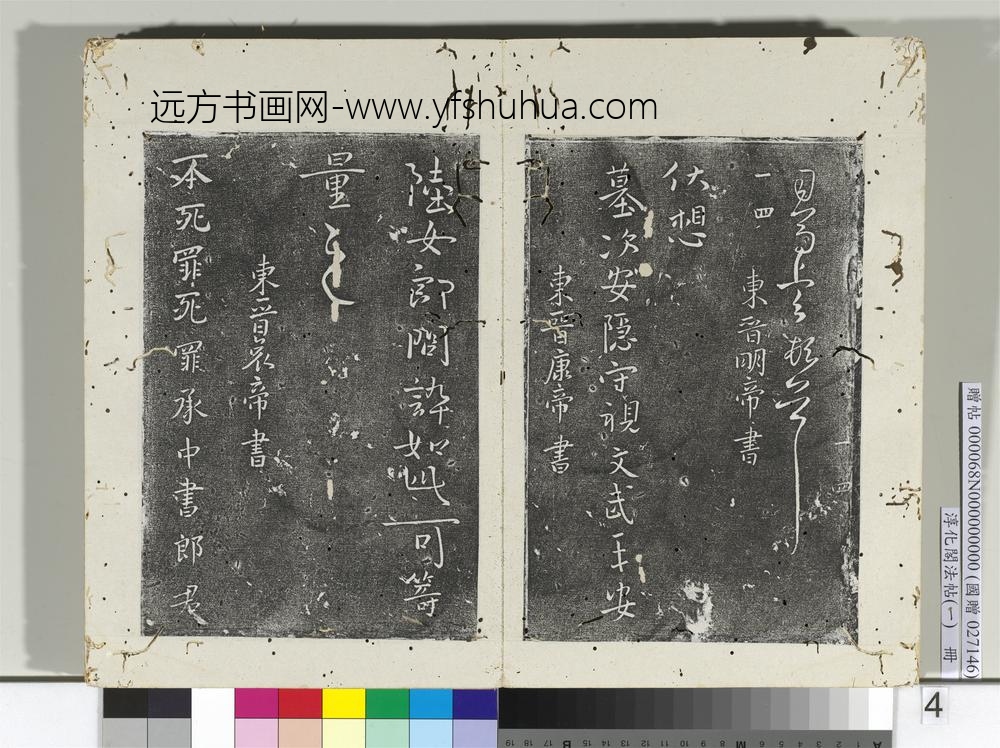 远方书画网-www.yfshuhua.com
一四
東晉明帝書
伏想
墓次安隱守視文武王安
東晉康帝書
陸女郎問誶如此可籌
量
東晉哀帝書
不死罪死罪承中書郎君
贈帖 000068N000000000 (國贈 027146)
淳化閣法帖(一) 冊
4